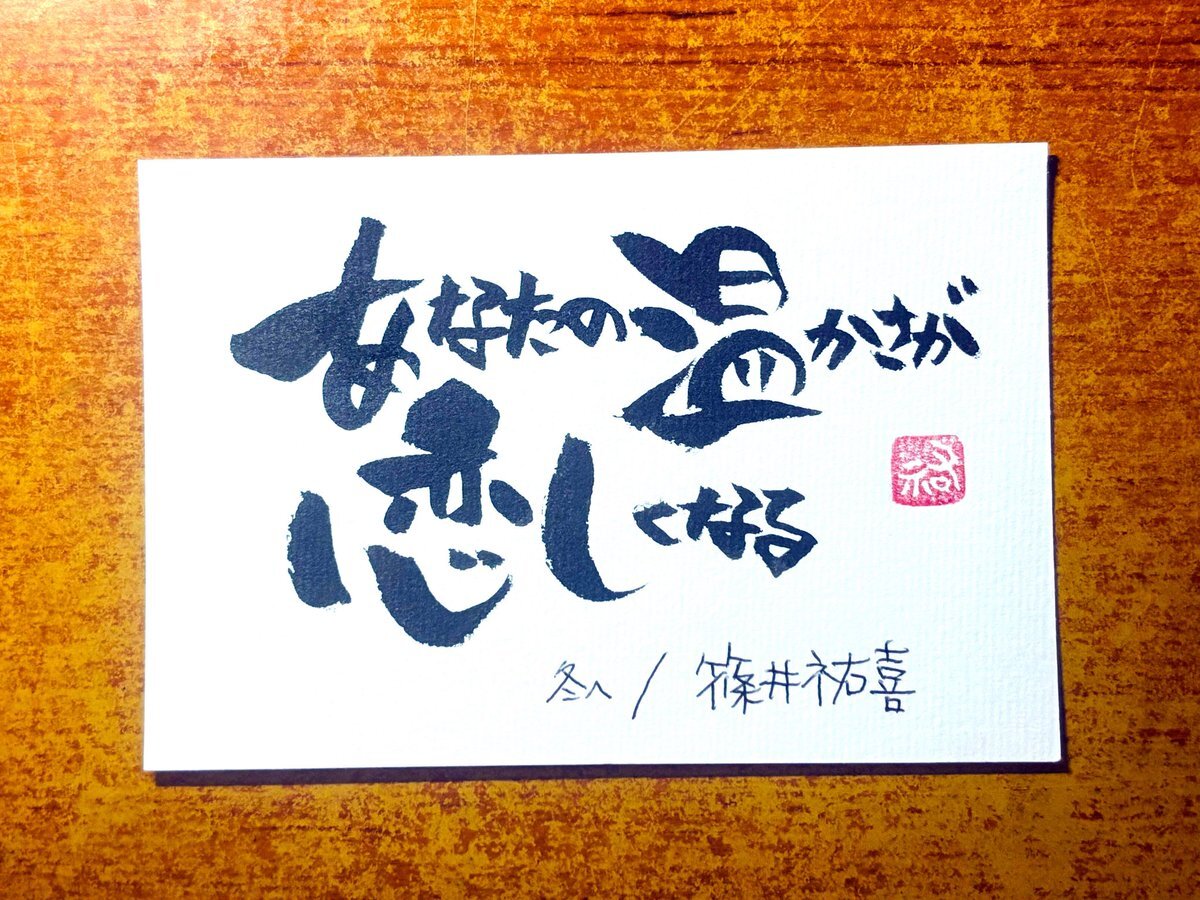 あなたの温かさが
恋しくなる
冬へ / 篠井祐喜